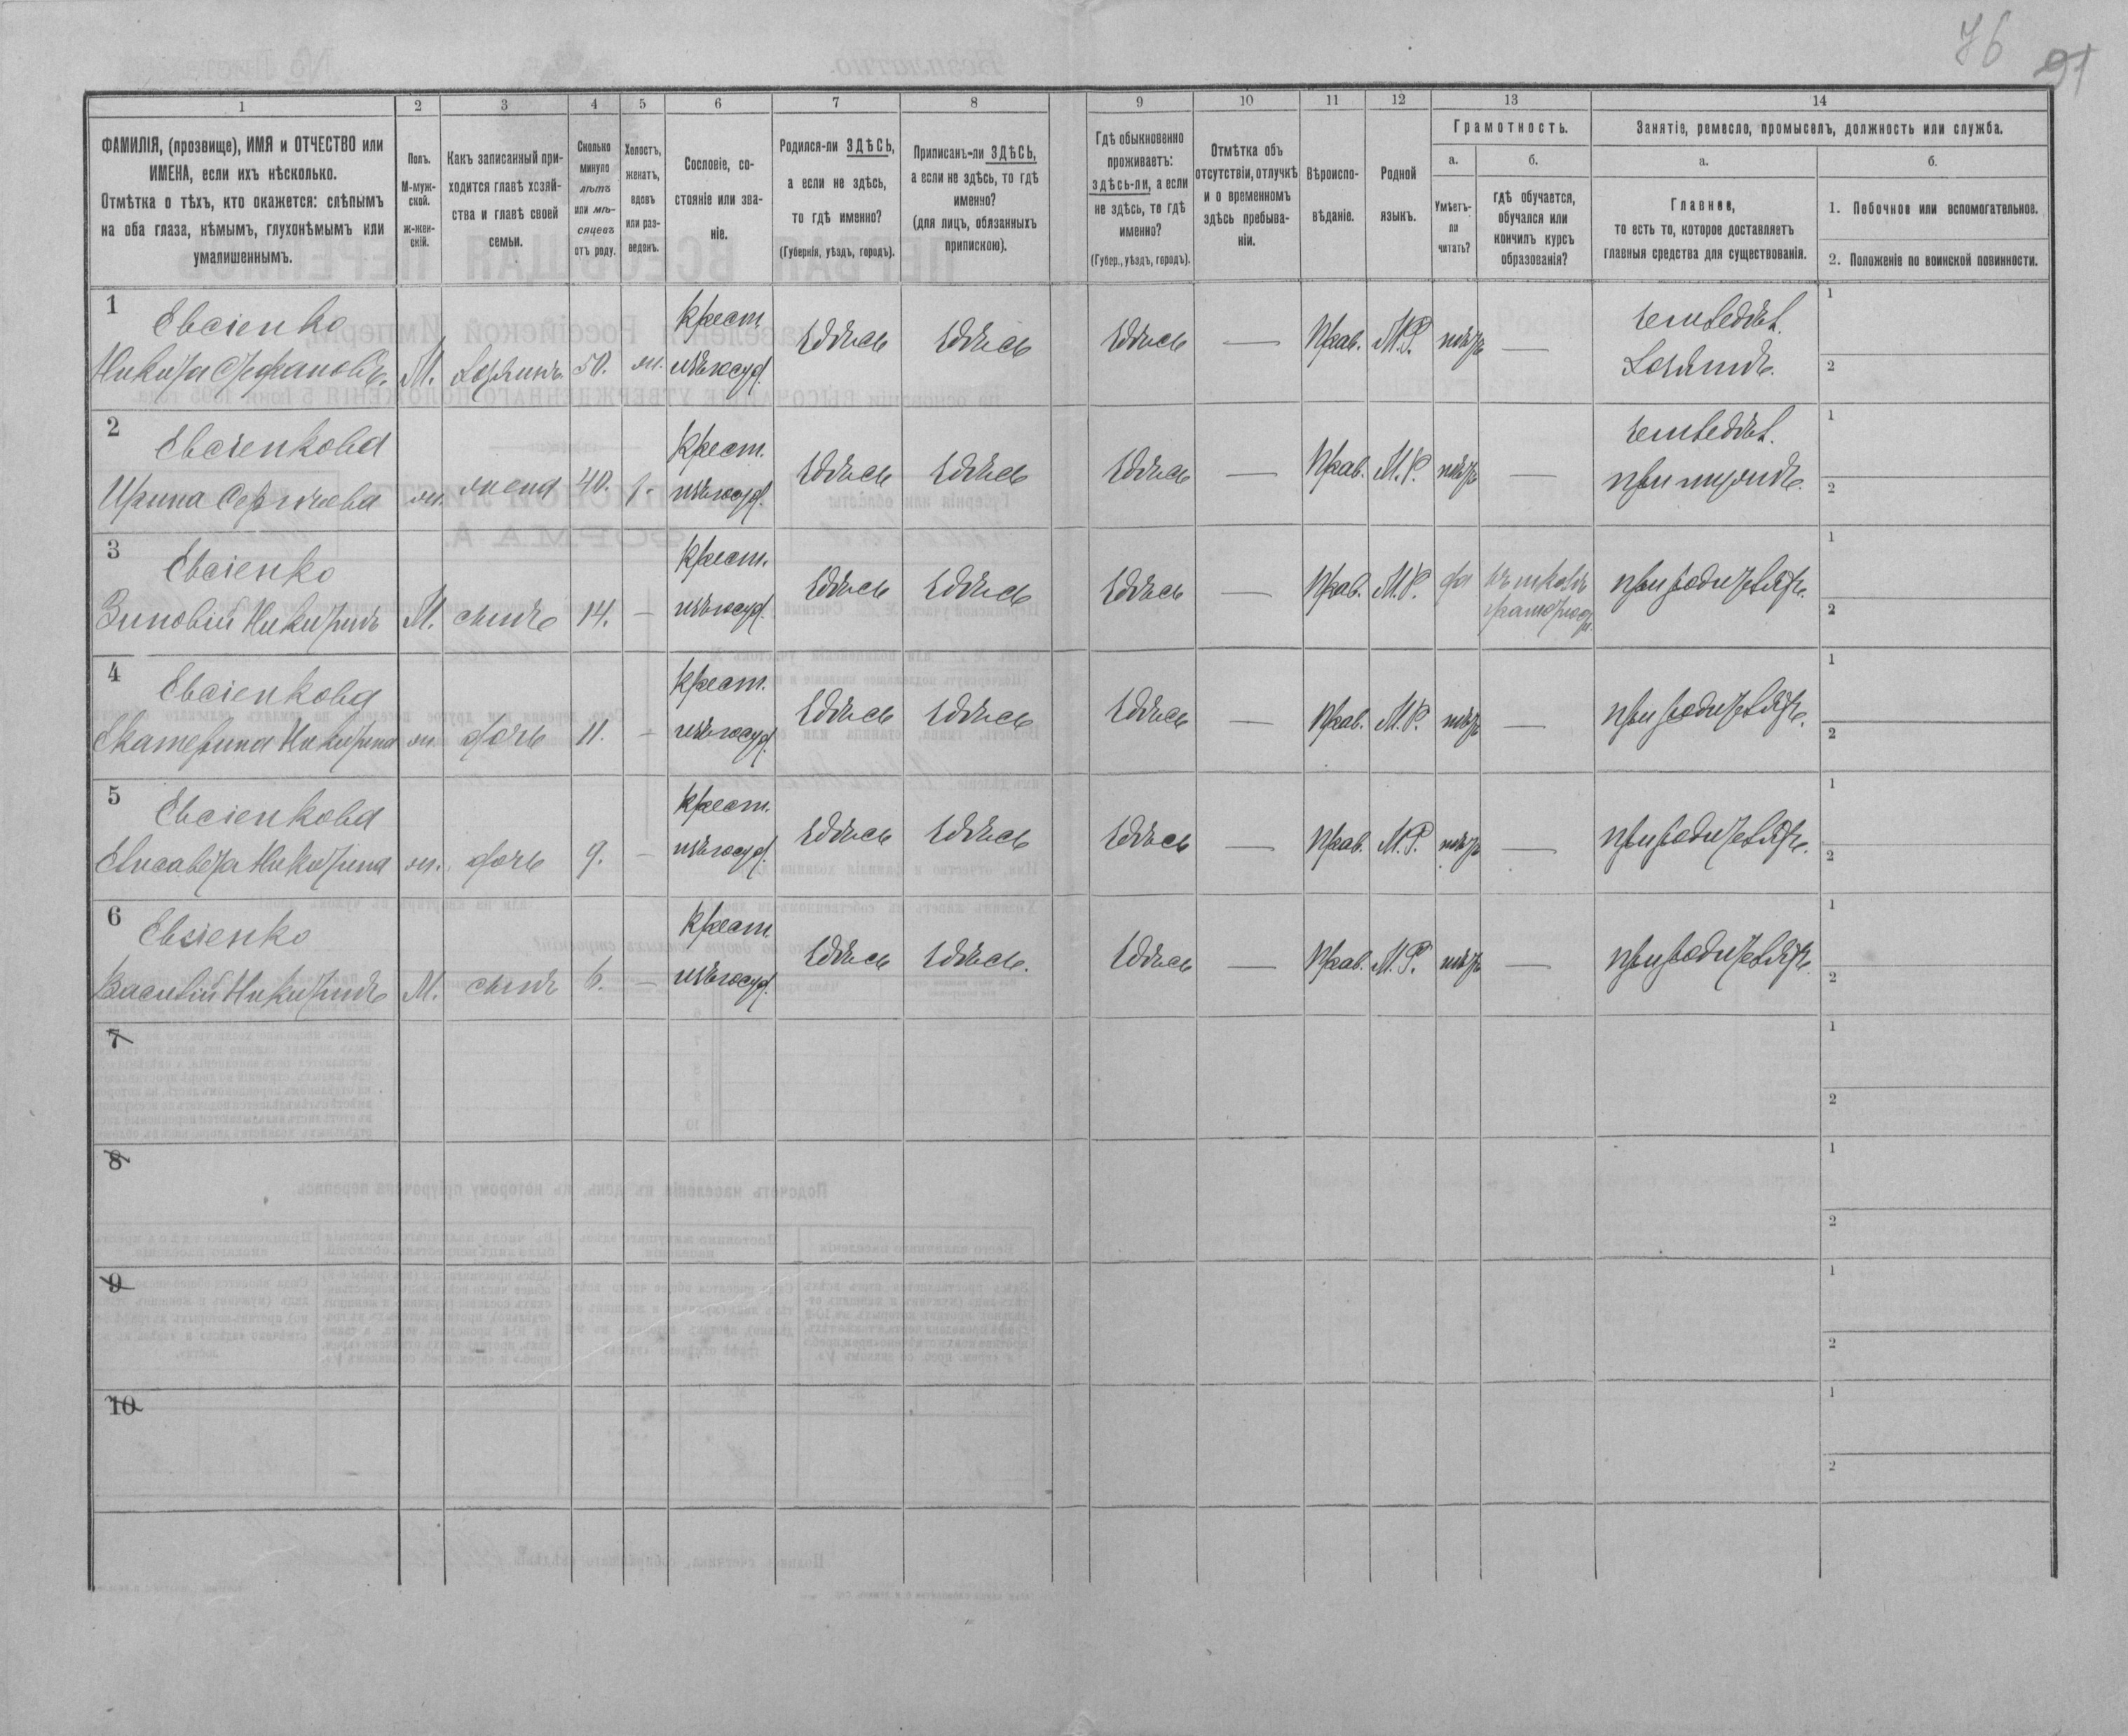 76
91
1 2 3 4 5 6 7 8 9 10 11 12 13 14
ФАМИЛІЯ, (прозвище), ИМЯ и ОТЧЕСТВО или
ИМЕНА, если ихъ нѣсколько.
Отмѣтка о тѣхъ, кто окажется: слѣпымъ
на оба глаза, нѣмымъ, глухонѣмымъ или
умалишеннымъ.
Полъ.
М-муж-
ской.
ж-жен-
скій.
Какъ записанный при-
ходится главѣ хозяй-
ства и главѣ своей
семьи.
Сколько
минуло
лѣтъ
или мѣ-
сяцевъ
отъ роду.
Холостъ,
женатъ,
вдовъ
или раз-
веденъ.
Сословіе, со-
стояніе или зва-
ніе.
Родился-ли ЗДѢСЬ,
а если не здѣсь,
то гдѣ именно?
(Губернія, уѣздъ, городъ).
Приписанъ-ли ЗДѢСЬ,
а если не здѣсь, то гдѣ
именно?
(для лицъ, обязанныхъ
припискою).
Гдѣ обыкновенно
проживаетъ:
здѣсь-ли, а если
не здѣсь, то гдѣ
именно?
(Губер., уѣздъ, городъ).
Отмѣтка объ
отсутствіи, отлучкѣ
и о временномъ
здѣсь пребыва-
ніи.
Вѣроиспо-
вѣданіе.
Родной
языкъ.
Грамотность.
а.
Умѣетъ-
ли
читать?
б.
гдѣ обучается,
обучался или
кончилъ курсъ
образованія?
Занятіе, ремесло, промыселъ, должность или служба.
а.
Главное,
то есть то, которое доставляетъ
главныя средства для существованія.
б.
1. Побочное или вспомогательное.
2. Положеніе по воинской повинности.
1 Евсіенко Крест. земледѣл. 1
Никита Стефановъ. М. хозяинъ. 50. ж. изъ госуд. Здѣсь Здѣсь Здѣсь — Прав. М.Р. нѣтъ — хозяинъ. 2
2 Евсіенкова Крест. земледѣл. 1
Ирина Сергѣева ж. жена 40. з. изъ госуд. Здѣсь Здѣсь Здѣсь — Прав. М.Р. нѣтъ — при мужѣ. 2
3 Евсіенко Крест. въ школѣ 1
Зиновій Никитинъ М. сынъ 14. — изъ госуд. Здѣсь Здѣсь Здѣсь — Прав. М.Р. да при родителяхъ. 2
4 Евсіенкова Крест. 1
Екатерина Никитина ж. дочь 11. — изъ госуд. Здѣсь Здѣсь Здѣсь — Прав. М.Р. нѣтъ — при родителяхъ. 2
5 Евсіенкова Крест. 1
Елисавета Никитина ж. дочь 9. — изъ госуд. Здѣсь Здѣсь Здѣсь — Прав. М.Р. нѣтъ — при родителяхъ. 2
6 Евсіенко Крест. 1
Василій Никитинъ М. сынъ 6. — изъ госуд. Здѣсь Здѣсь. Здѣсь — Прав. М.Р. нѣтъ — при родителяхъ. 2
7 1
2
8 1
2
9 1
2
10 1
2